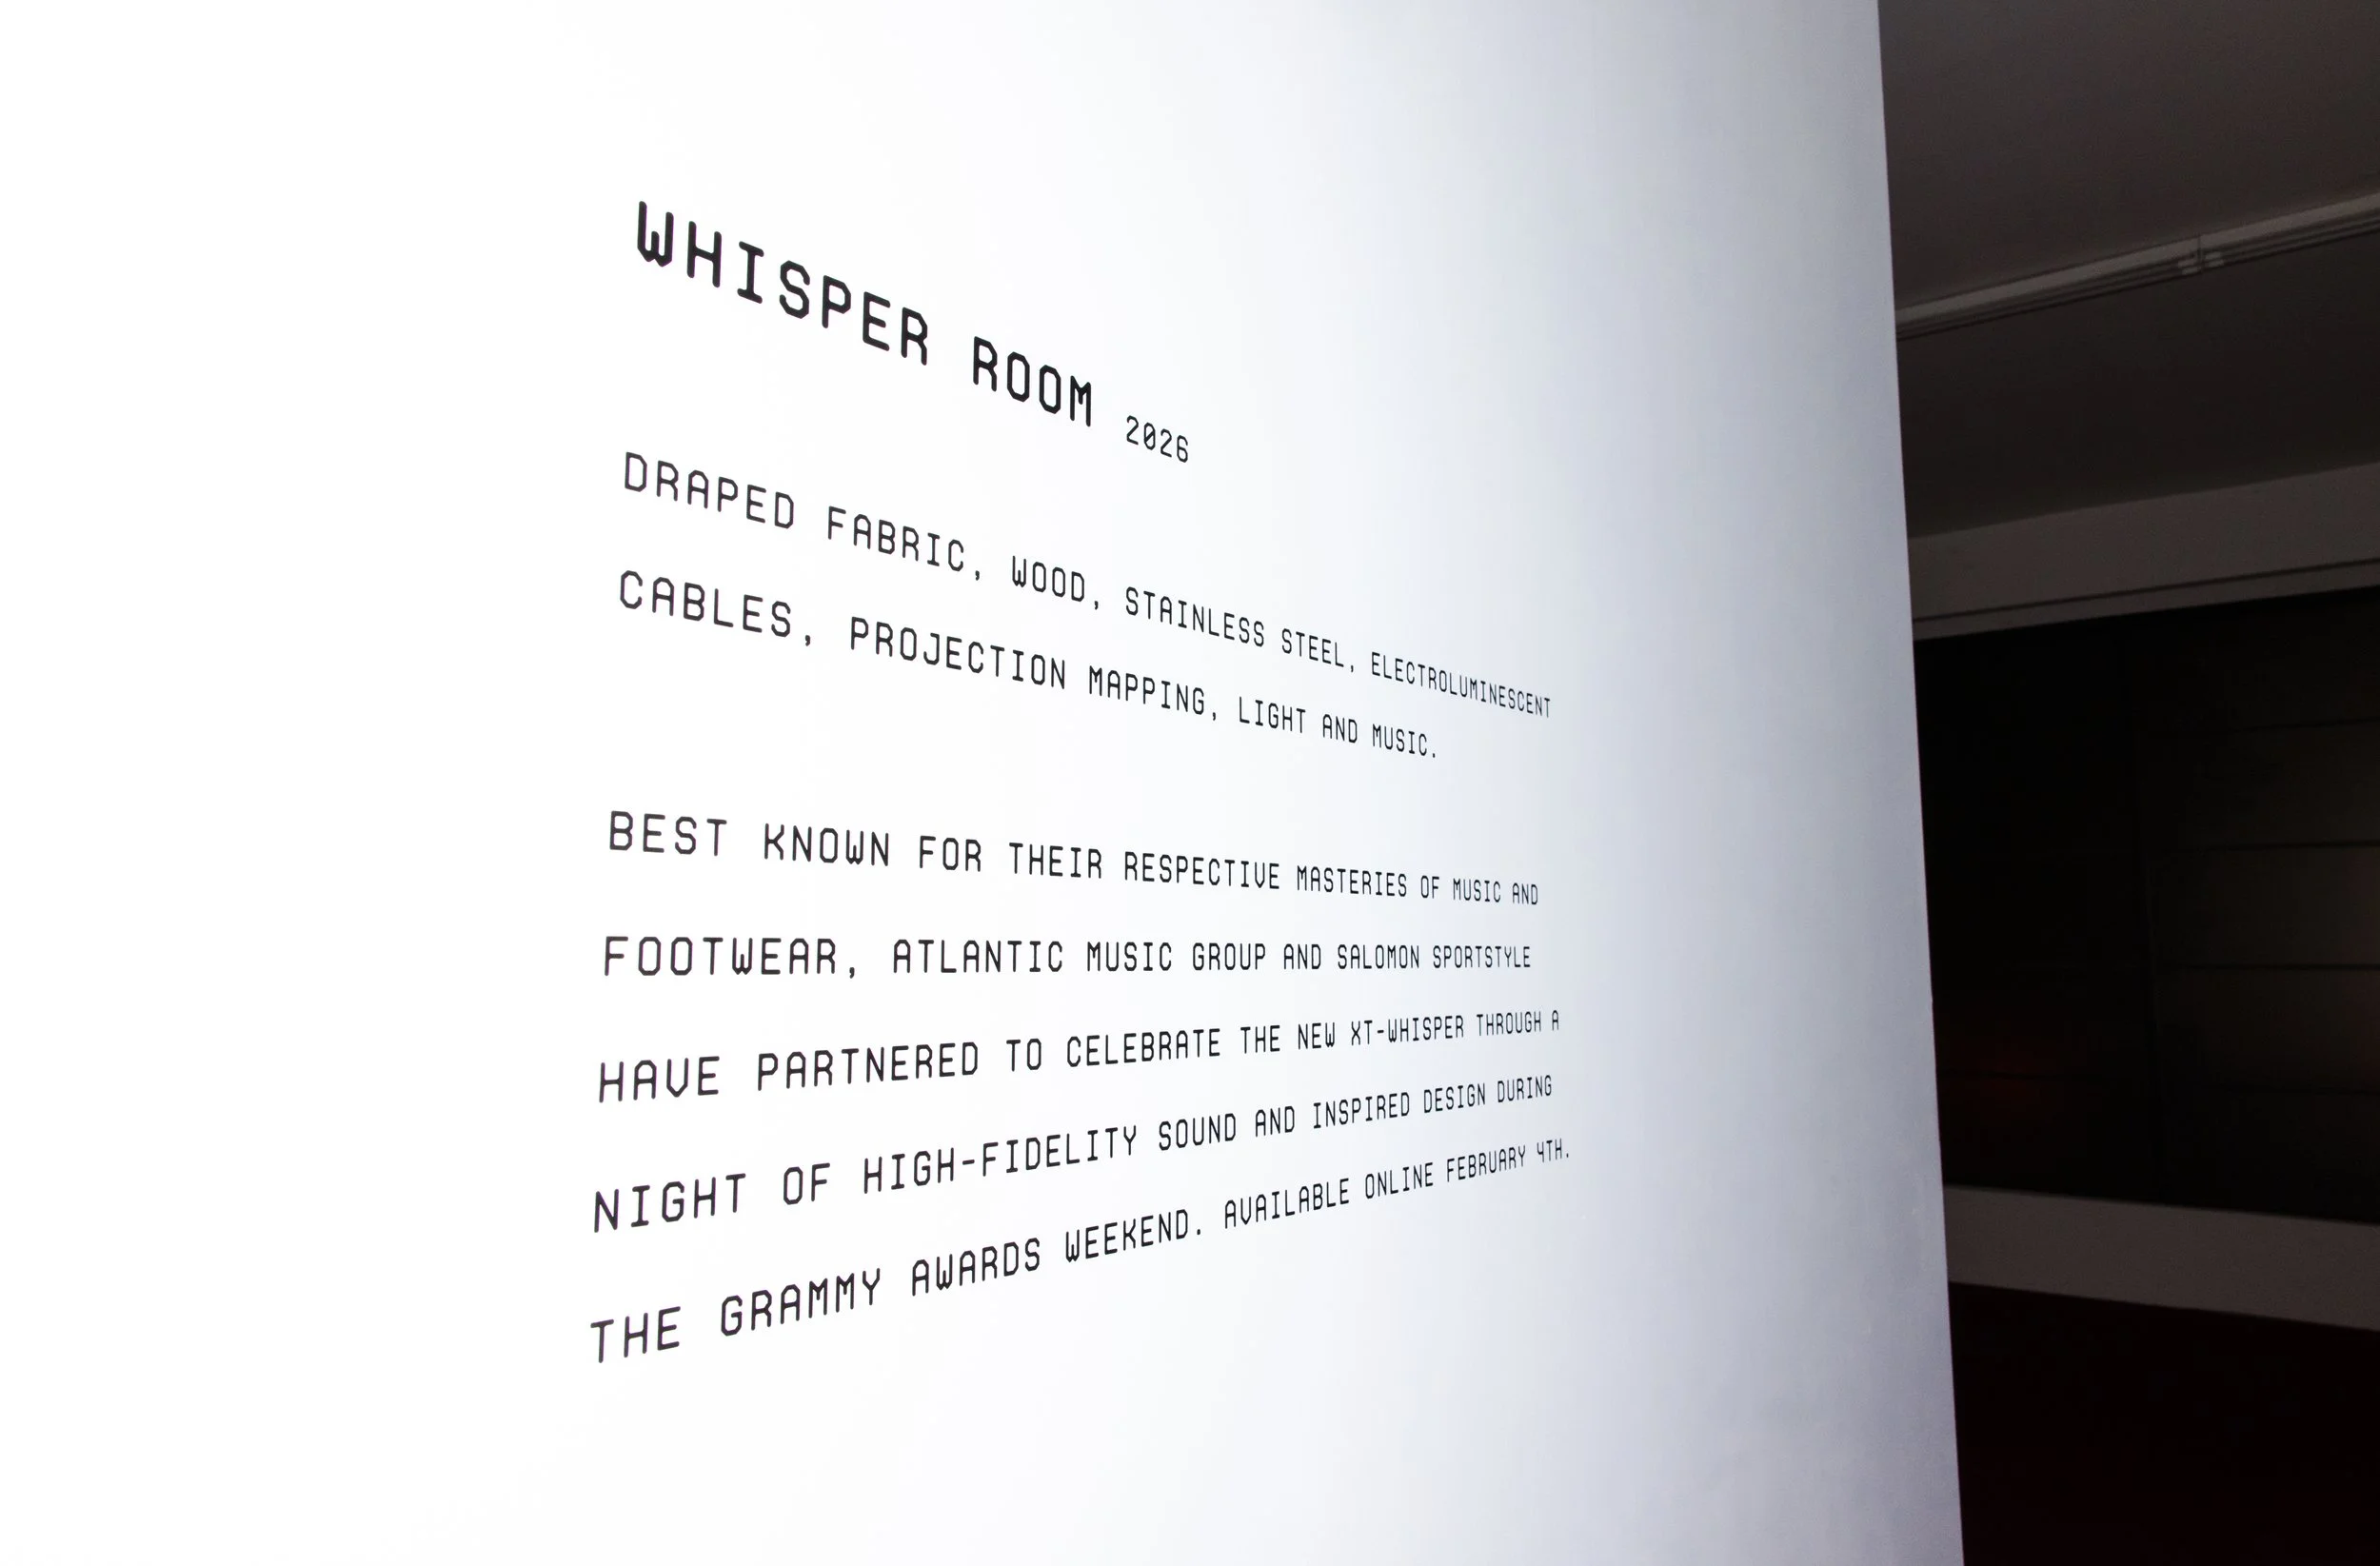 WHISPER ROOM 2026
DRAPED FABRIC, WOOD, STAINLESS STEEL, ELECTROLUMINESCENT
CABLES, PROJECTION MAPPING, LIGHT AND MUSIC.
BEST KNOWN FOR THEIR RESPECTIVE MASTERIES OF MUSIC AND
FOOTWEAR, ATLANTIC MUSIC GROUP AND SALOMON SPORTSTYLE
HAVE PARTNERED TO CELEBRATE THE NEW XT-WHISPER THROUGH A
NIGHT OF HIGH-FIDELITY SOUND AND INSPIRED DESIGN DURING
THE GRAMMY AWARDS WEEKEND. AVAILABLE ONLINE FEBRUARY 4TH.